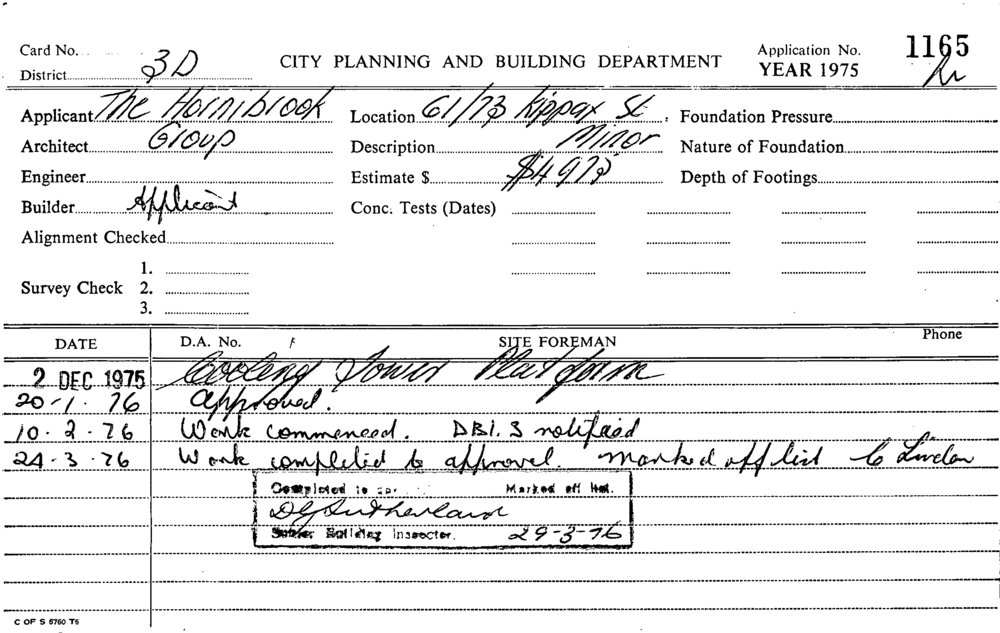 Card No. Application No. 1165
District 3D CITY PLANNING AND BUILDING DEPARTMENT YEAR 1975
Applicant The Hornibrook Location 61/73 Kippax St. Foundation Pressure
Architect Group Description Minor Nature of Foundation
Engineer Estimate $ $4975 Depth of Footings
Builder Applicant Conc. Tests (Dates)
Alignment Checked
1.
Survey Check 2.
3.
DATE D.A. No. SITE FOREMAN Phone
2 DEC 1975 Cooling Tower Platform
20-1-76 Approved.
10-2-76 Work commenced. DBI.S notified
24-3-76 Work completed to approval. Marked off list
Completed to Marked off list.
DG Sutherland
Building Inspector. 29-3-76
C OF S 6760 T6